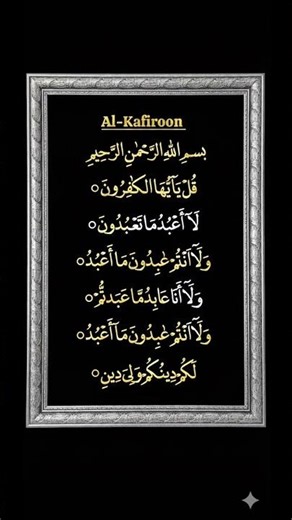 Al-Kafiroon
بسم اللهِ الرَّحْمٰنِ الرَّحِيمِ
قُلْ يَآَيُّهَا الكٰفِرُونَ○
لَآ أَعْبُدُ مَا تَعْبُدُونَ○
وَلَآ أَنْتُمْ عٰبِدُونَ مَآ أَعْبُدُ○
وَلَآ أَنَا عَابِدٌ مَّا عَبَدتُّمْ○
وَلَآ أَنْتُمْ عٰبِدُونَ مَآ أَعْبُدُ○
لَكُمْ دِينُكُمْ وَلِيَ دِينِ○